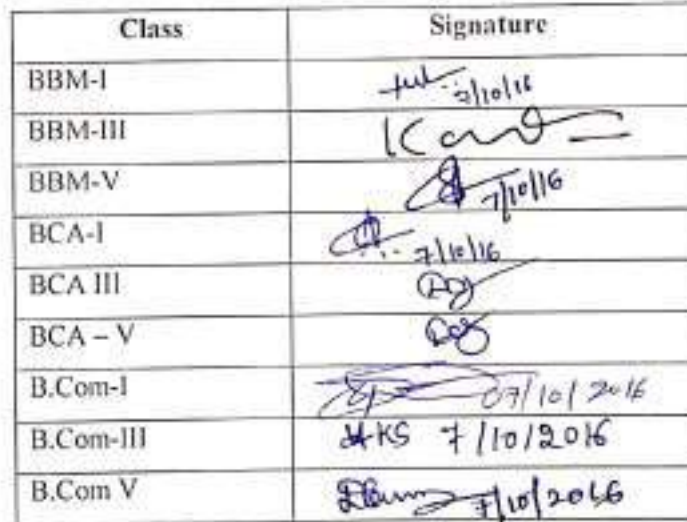 Class Signature
BBM-I 7/10/16
BBM-III
BBM-V 7/10/16
BCA-I 7/10/16
BCA III
BCA – V
B.Com-I 07/10/2016
B.Com-III 7/10/2016
B.Com V 7/10/2016